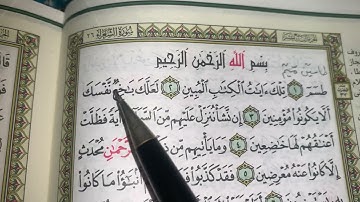 سُورَةُ الشُّعَرَاءِ ٢٦
بِسْمِ اللَّهِ الرَّحْمَٰنِ الرَّحِيمِ
طسٓمٓ ١ تِلْكَ ءَايَٰتُ الْكِتَٰبِ الْمُبِينِ ٢ لَعَلَّكَ بَٰخِعٌ نَّفْسَكَ
أَلَّا يَكُونُوا۟ مُؤْمِنِينَ ٣ إِن نَّشَأْ نُنَزِّلْ عَلَيْهِم مِّنَ السَّمَآءِ ءَايَةً فَظَلَّتْ
أَعْنَٰقُهُمْ لَهَا خَٰضِعِينَ ٤ وَمَا يَأْتِيهِم مِّن الرَّحْمَٰنِ مُحْدَثٍ
إِلَّا كَانُوا۟ عَنْهُ مُعْرِضِينَ ٥ فَقَدْ كَذَّبُوا۟ أَنۢبَٰٓؤُا۟ مَا كَانُوا۟